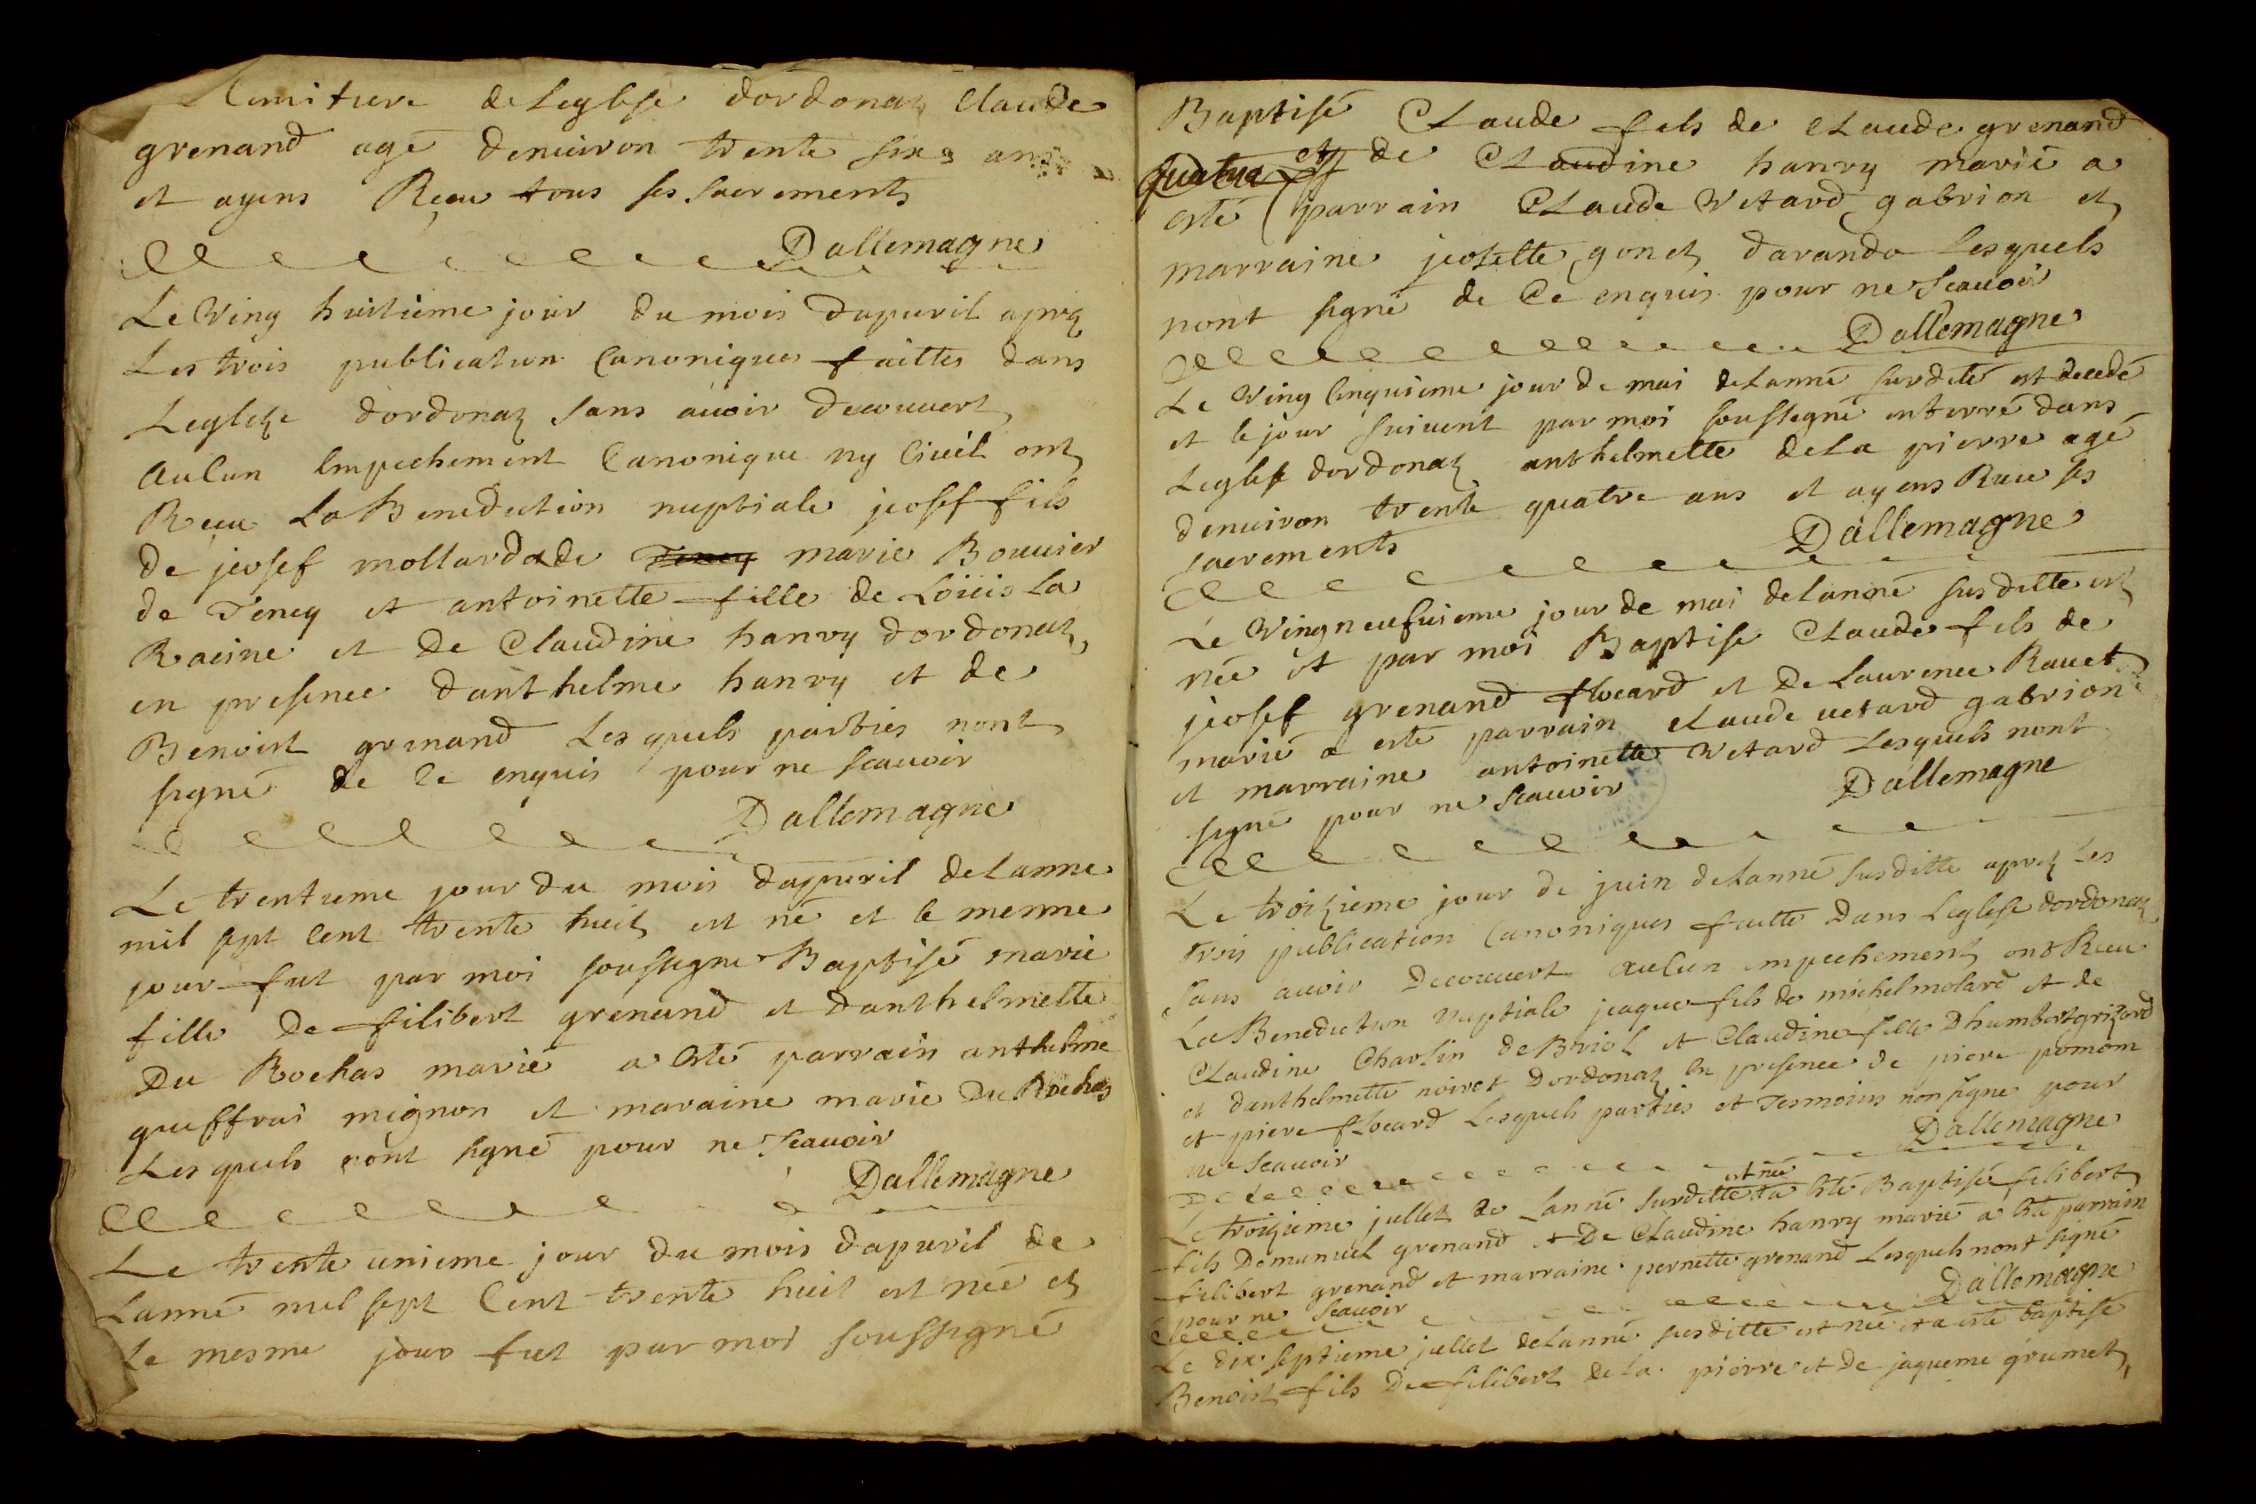 Cemitiere de Leglese dordonaz Claude
grenand agé denuiron trente six ans
et ayens Reçu tous ses sacrements
Dallemagne
Le Ving huitieme jour du mois dapuril aprez
Les trois publication Canonique faittes dans
Leglize dordonaz sans auoir decouuert
aucun Empechement Canonique ny Ciuil ont
Reçu La Benediction nuptiale jeosef fils
de jeosef mollard & de marie Bouuier
de Tency et antoinette fille de Loüis La
Racine et de Claudine hanry dordonaz
en presence danthelme hanry et de
Benoist grenand Lesquels parties nont
signé de Ce enquis pour ne scauoir
Dallemagne
Le trentieme jour du mois dapuril de Lanne
mil sept Cent trente huit est né et le mesme
jour fut par moi soussigne Baptisé marie
fille de filibert grenand et danthelmette
Du Rochas marié a esté parrain anthelme
queffrai mignon et maraine marie Du Rochas
Lesquels nont signé pour ne scauoir
Dallemagne
Le trente unieme jour du mois dapuril de
Lanné mil sept Cent trente huit est neé et
Le mesme jour fut par moi soussigné
Baptisé Claude fils de Claude grenand
et de Claudine hanry marié a
esté parrain Claude Vetard gabrion et
marraine jeosette gonet daranda Lesquels
nont signé de Ce enquis pour ne scauoir
Dallemagne
Le Ving Cinquieme jour de mai de Lanné surdité est decedé
et le jour suiuent par moi soussegné enterré dans
Legles dordonaz anthelmette de La pierre agé
denuiron trente quatre ans et ayens Recu ses
sacrements
Dallemagne
Le Vingneufuieme jour de mai de Lanné susditte est
neé et par moi Baptise Claude fils de
jeosef grenand flocard et de Laurence Rauet
marié a esté parrain Claude uetard gabrion
et marraine antoinette Vetard Lesquels nont
signé pour ne scauoir
Dallemagne
Le troizieme jour de juin de Lanné susditte aprez Les
trois publication Canoniques faitte dans Leglese dordonaz
sans auoir Decouuert aucun empechement ont Recu
La Benediction nuptiale jeaque fils de michel molard et de
Claudine Charlin de Briol et Claudine fille Dhumbert grizard
et danthelmette noiret dordonaz en presence de piere pomom
et piere flocard Lesquels parties et Tesmoins non signe pour
ne scauoir
Dallemagne
est neé
Le troizieme jullet de Lanné surditte a esté Baptisé filibert
fils Demanuel grenand et De Claudine hanry marié a esté parrain
filibert grenand et marraine pernette grenand Lesquels nont signé
pour ne scauoir
Dallemagne
Le dix septieme jullet de Lanné susditte est neé et a esté baptisé
Benoist fils De filibert de La pierre et de jaqueme grumet